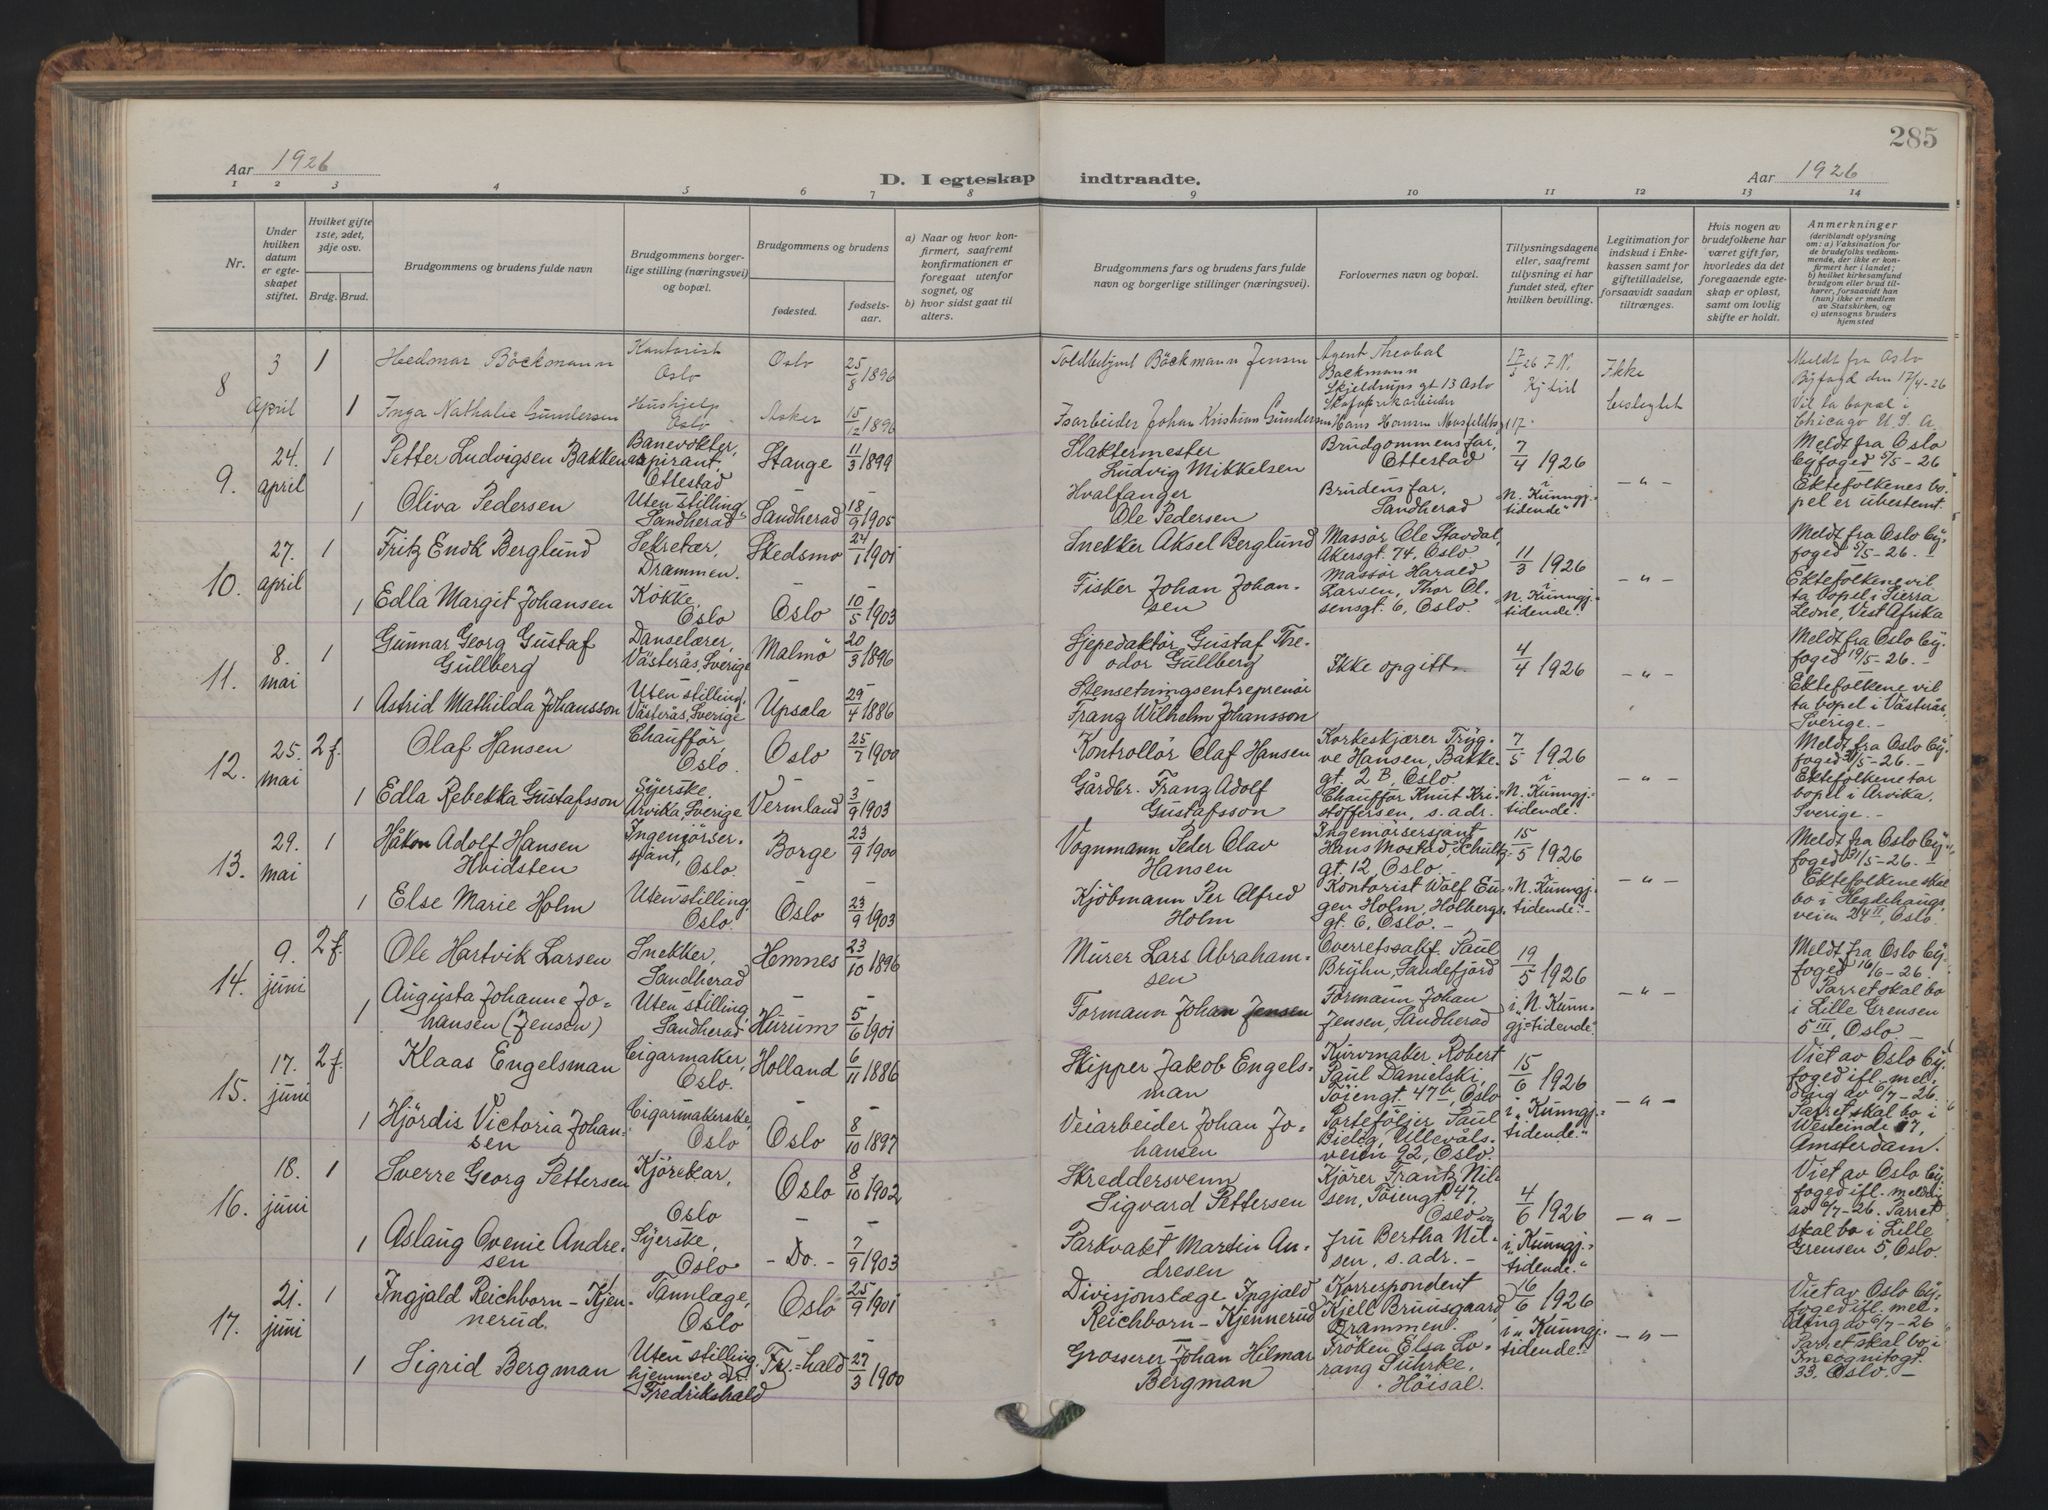 285
Aar 1926
D. I egteskap indtraadte.
Aar 1926
1 2 3 4 5 6 7 8 9 10 11 12 13 14
Nr.
Under hvilken datum er egteskapet stiftet.
Hvilket gifte 1ste, 2det, 3dje osv.
Brdg. Brud.
Brudgommens og brudens fulde navn
Brudgommens borgerlige stilling (næringsvei) og bopæl.
Brudgommens og brudens
fødested.
fødselsaar.
a) Naar og hvor konfirmert, saafremt konfirmationen er foregaat utenfor sognet, og
b) hvor sidst gaat til alters.
Brudgommens fars og brudens fars fulde navn og borgerlige stillinger (næringsvei).
Forlovernes navn og bopæl.
Tillysningsdagene eller, saafremt tillysning ei har fundet sted, efter hvilken bevilling.
Legitimation for indskud i Enkekassen samt for giftetilladelse, forsaavidt saadan tiltrænges.
Hvis nogen av brudefolkene har været gift før, hvorledes da det foregaaende egteskap er opløst, samt om lovlig skifte er holdt.
Anmerkninger
(deriblandt oplysning om: a) Vaksination for de brudefolks vedkommende, der ikke er konfirmert her i landet; b) hvilket kirkesamfund brudgom eller brud tilhører, forsaavidt han (hun) ikke er medlem av Statskirken, og c) utensogns bruders hjemsted
8 3 April 1
Hedmar Böckmann
Kontorist Oslo
Oslo 25/8 1896
Böckmann Jensen
Agent Theobal Backmann
Skjeldrups gt 13 Oslo
Ikke
Meldt fra Oslo
Byfogd den 17/4-26
1 Inga Nathalie Gundersen
Hushjelp Oslo
Asker 15/12 1896
Isarbeider Johan Kristian Gundersen
Vil ta bopæl i
Chicago U. S. A.
9. 24. april 1
Petter Ludvigsen Bakken
Banevokter, aspirant, Ottestad
Stange 11/3 1899
Slaktermester
Ludvig Mikkelsen
Brudgommens far,
Ottestad
7/4 1926
— „ —
Meldt fra Oslo
Byfoged 5/5-26
1 Oliva Pedersen
Uten stilling, Sandherad
Sandherad 18/9 1905
Hvalfanger
Ole Pedersen
Brudens far,
Sandherad
„N. Kunngj.-
tidende“
Ektefolkenes bo-
pel er ubestemt.
10. 27. april 1
Fritz Endk Berglund
Sekretær, Drammen.
Skedsmo 24/1 1901
Snekker Aksel Berglund
Massør Ole Stavdal,
Akersgt. 74, Oslo.
11/3 1926
— „ —
Meldt fra Oslo By-
foged 5/5-26. —
1 Edla Margit Johansen
Kokke, Oslo
Oslo 10/5 1903
Fisker Johan Johan-
sen
Massør Harald
Larsen, Thor Ol-
sensgt. 6, Oslo
„N. Kunngj.-
tidende.“
Ektefolkene vil
ta bopel i Sierra
Leone, Vest Afrika
11. 8. mai 1
Gunnar Georg Gustaf
Gullberg
Danselærer, Västerås, Sverige
Malmö 20/3 1896
Gustaf The-
odor Gullberg
Ikke opgitt.
4/4 1926
— „ —
Meldt fra Oslo By-
foged 19/5-26. —
1 Astrid Mathilda Johansson
Uten stilling, Västerås, Sverige
Upsala 29/4 1886
Stensetningsentreprenör
Franz Wilhelm Johansson
Ektefolkene vil
ta bopel i Västerås,
Sverige. —
12. 25. mai 2 f.
Olaf Hansen
Chauffór, Oslo.
Oslo 25/7 1900
Kontrollör Olaf Hansen
Korkeskjærer Tryg-
ve Hansen, Bakke-
gt. 2 B, Oslo
7/5 1926
— „ —
Meldt fra Oslo By-
foged 31/5-26. —
1 Edla Rebekka Gustafsson
Syerske. Arvika, Sverige
Vermland 3/9 1903
Gårdbr. Franz Adolf
Gustafsson
Chauffør Knut Kri-
stoffersen, s. adr.
„N. Kunngj.-
tidende.“
Ektefolkene tar
bopel i Arvika,
Sverige. —
13. 29. mai 1
Håkon Adolf Hansen
Hvidsten
Ingeniörser-
sjant, Oslo.
Borge 23/9 1900
Vognmann Peder Olav
Hansen
Ingeniörsersjant
Hans Mostad, Schultz-
gt. 12, Oslo.
15/5 1926
— „ —
Meldt fra Oslo By-
foged 31/5-26. —
1 Else Marie Holm
Uten stilling, Oslo.
Oslo 23/9 1903
Kjöbmann Per Alfred
Holm
Kontorist Wolf Eu-
gen Holm, Holbergs-
gt. 6, Oslo. —
„N. Kunngj.-
tidende.“
Ektefolkene skal
bo i Hegdehaugs-
veien 24 II, Oslo.
14. 9. juni 2 f.
Ole Hartvik Larsen
Snekker, Sandherad
Hemnes 23/10 1896
Murer Lars Abraham-
sen
Overretssakf. Paul
Bryhn, Sandefjord
19/5 1926
— „ —
Meldt fra Oslo By-
foged 16/6-26.
1 Augusta Johanne Jo-
hansen (Jensen)
Uten stilling, Sandherad
Hurum 5/6 1901
Formann Johan Jensen
Formann Johan
Jensen, Sandherad
i „N. Kunn-
gj-tidende.“
Parret skal bo
i Lille Grensen
5 III, Oslo —
15. 17. juni 2 f.
Klaas Engelsman
Cigarmaker, Oslo.
Holland 6/11 1886
Skipper Jakob Engels-
man
Kurvmaker Robert
Paul Danielski,
Töiengt. 47 b, Oslo
15/6 1926
— „ —
Viet av Oslo By-
foged ifl. mel-
ding av 6/7-26.
1 Hjördis Victoria Johan-
sen
Cigarmakerske, Oslo
Oslo 8/10 1897
Veiarbeider Johan Jo-
hansen
Portefóljer Paul
Bieleg, Ullevåls-
veien 92, Oslo.
i „Kunngj.-
tidende.“
Parret skal bo i
Westeinde 17,
Amsterdam.
16. 18. juni 1
Sverre Georg Pettersen
Kjörekar, Oslo
Oslo 8/10 1902
Skreddersvenn
Sigvard Pettersen
Kjörer Frantz Nil-
sen, Töiengt. 47,
Oslo og
4/6 1926
— „ —
Viet av Oslo By-
foged ifl. meldig
av 6/7-26. Parret
1 Aslaug Ovenie Andre-
sen
Syerske, Oslo
— Do. — 7/9 1903
Parkvakt Martin An-
dresen
fru Bertha Nil-
sen, s. adr. —
i „Kunngj.-
tidende.“
skal bo i Lille
Grensen 5, Oslo.
17. 21. juni 1
Ingjald Reichborn-Kjen-
nerud.
Tannlæge, Oslo
Oslo 25/9 1901
Divisjonslæge Ingjald
Reichborn-Kjennerud
Korrespondent
Kjell Bruusgaard,
Drammen.
16/6 1926
— „ —
Viet av Oslo By-
foged ifl. mel-
ding av 6/7-26
1 Sigrid Bergman
Uten stilling, Fredrikshald
Fr.=hald 27/3 1900
Grosserer Johan Hilmar
Bergman
Fröken Elsa Lo-
rang Suhrke,
Höisal.
i „Kunngj.-
tidende.“
Parret skal bo i
Incognitogt.
33, Oslo. —